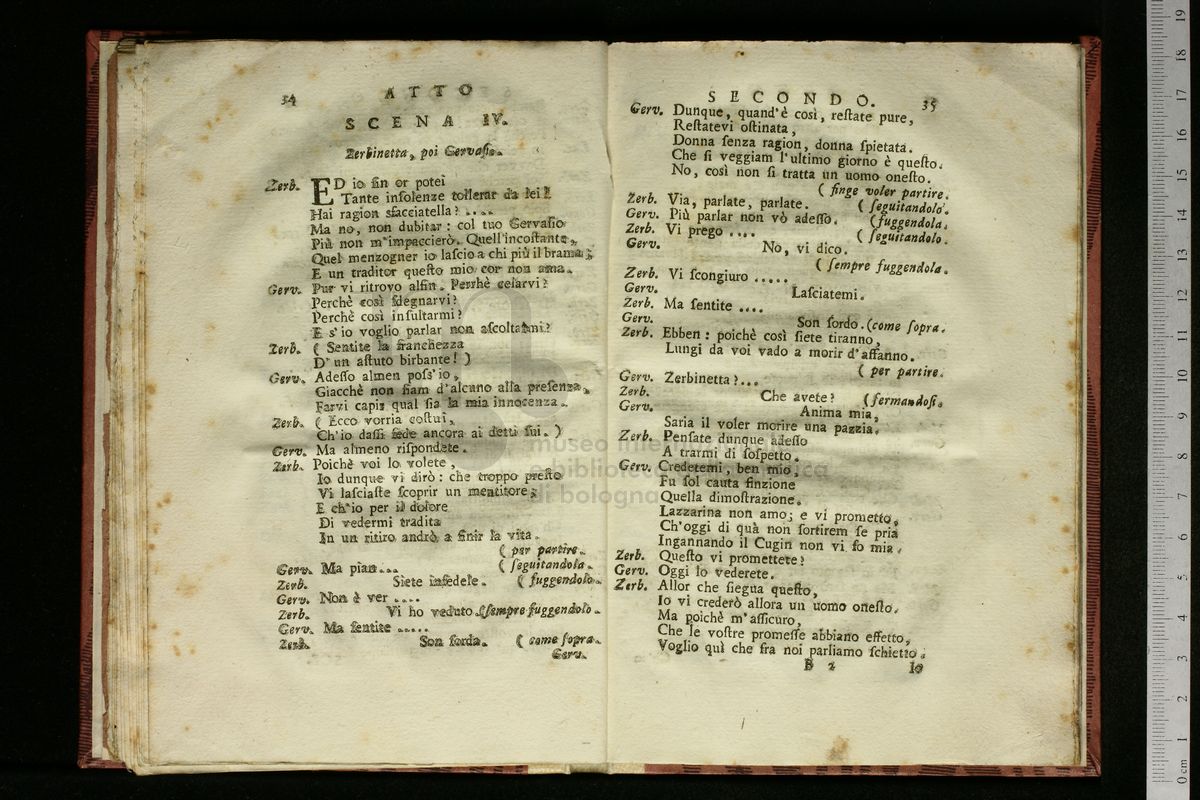 34 ATTO
SCENA IV.
Zerbinetta, poi Gervasio.
Zerb. ED io ſin or potei
Tante inſolenze tollerar da lei!
Hai ragion sfacciatella? ....
Ma no, non dubitar: col tuo Gervaſio
Più non m'impaccierò. Quell'incoſtante,
Quel menzogner io laſcio a chi più il brama;
E un traditor queſto mio cor non ama.
Gerv. Pur vi ritrovo alfin. Perchè celarvi?
Perchè così ſdegnarvi?
Perchè così inſultarmi?
E s'io voglio parlar non aſcoltarmi?
Zerb. ( Sentite la franchezza
D'un aſtuto birbante! )
Gerv. Adeſſo almen poſs'io,
Giacchè non ſiam d'alcuno alla preſenza,
Farvi capir qual ſia la mia innocenza.
Zerb. ( Ecco vorria coſtui,
Ch'io daſſi fede ancora ai detti ſui. )
Gerv. Ma almeno riſpondete.
Zerb. Poichè voi lo volete,
Io dunque vi dirò: che troppo preſto
Vi laſciaſte ſcoprir un mentitore;
E ch'io per il dolore
Di vedermi tradita
In un ritiro andrò a finir la vita.
( per partire.
Gerv. Ma pian... ( ſeguitandola.
Zerb. Siete infedele. ( fuggendolo.
Gerv. Non è ver ....
Zerb. Vi ho veduto. (ſempre fuggendolo.
Gerv. Ma ſentite .....
Zerb. Son ſorda. ( come ſopra.
Gerv.
SECONDO. 35
Gerv. Dunque, quand'è così, reſtate pure,
Reſtatevi oſtinata,
Donna ſenza ragion, donna ſpietata.
Che ſi veggiam l'ultimo giorno è queſto.
No, così non ſi tratta un uomo oneſto.
( finge voler partire.
Zerb. Via, parlate, parlate. ( ſeguitandolo.
Gerv. Più parlar non vò adeſſo. (fuggendola.
Zerb. Vi prego .... ( ſeguitandolo.
Gerv. No, vi dico.
( ſempre fuggendola.
Zerb. Vi ſcongiuro .....
Gerv. Laſciatemi.
Zerb. Ma ſentite ....
Gerv. Son ſordo. (come ſopra.
Zerb. Ebben: poichè così ſiete tiranno,
Lungi da voi vado a morir d'affanno.
( per partire.
Gerv. Zerbinetta?...
Zerb. Che avete? (fermandoſi.
Gerv. Anima mia,
Saria il voler morire una pazzia.
Zerb. Penſate dunque adeſſo
A trarmi di ſoſpetto.
Gerv. Credetemi, ben mio,
Fu ſol cauta finzione
Quella dimoſtrazione.
Lazzarina non amo; e vi prometto,
Ch'oggi di quà non ſortirem ſe pria
Ingannando il Cugin non vi fo mia.
Zerb. Queſto vi promettete?
Gerv. Oggi lo vederete.
Zerb. Allor che ſiegua queſto,
Io vi crederò allora un uomo oneſto.
Ma poichè m'aſſicuro,
Che le voſtre promeſſe abbiano effetto,
Voglio quì che fra noi parliamo ſchietto.
B 2 Io